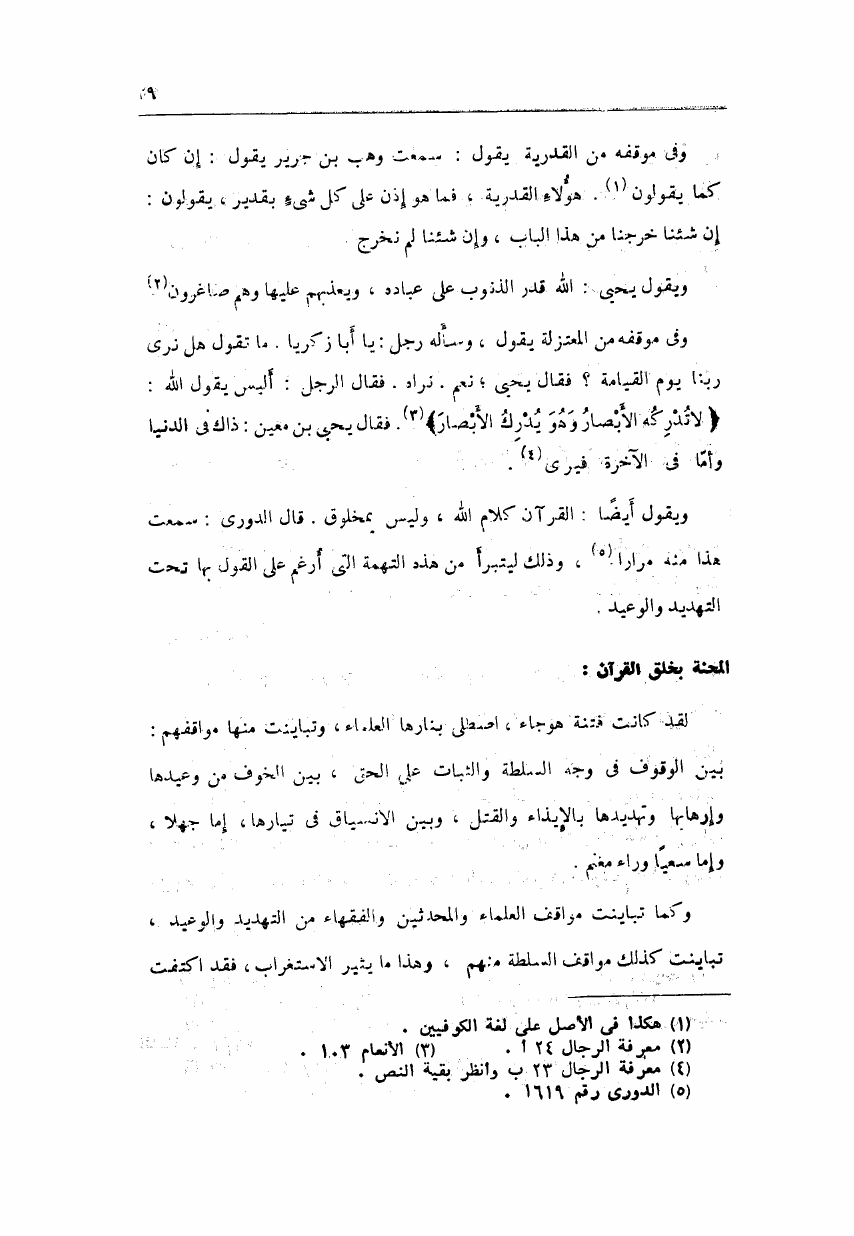 ٤٩
وفى موقفه من القدرية يقول : سمعت وهب بن جرير يقول : إن كان
كما يقولون (١) . هؤلاء القدرية ، فما هو إذن على كل شىء بقدير ، يقولون :
إن شئنا خرجنا من هذا الباب ، وإن شئنا لم نخرج .
ويقول يحيى : الله قدر الذنوب على عباده ، ويعذبهم عليها وهم صاغرون(٢)
وفى موقفه من المعتزلة يقول ، وسأله رجل : يا أبا زكريا . ما تقول هل نرى
ربنا يوم القيامة ؟ فقال يحيى ؛ نعم . نراه . فقال الرجل : أليس يقول الله :
﴿ لاتُدْرِكه الأبْصارُ وَهُوَ يُدْرِكُ الأبْصارَ﴾(٣) . فقال يحيى بن معين : ذاك فى الدنيا
وأمّا فى الآخرة فيرى (٤) .
ويقول أيضًا : القرآن كلام الله ، وليس بمخلوق . قال الدورى : سمعت
هذا منه مرارا (٥) ، وذلك ليتبرأ من هذه التهمة التى أرغم على القول بها تحت
التهديد والوعيد .
المحنة بخلق القرآن :
لقد كانت فتنة هوجاء ، اصطلى بنارها العلماء ، وتباينت منها مواقفهم :
بين الوقوف فى وجه السلطة والثبات على الحق ، بين الخوف من وعيدها
وإرهابها وتهديدها بالإيذاء والقتل ، وبين الانسياق فى تيارها ، إما جهلا ،
وإما سعيًا وراء مغنم .
وكما تباينت مواقف العلماء والمحدثين والفقهاء من التهديد والوعيد ،
تباينت كذلك مواقف السلطة منهم ، وهذا ما يثير الاستغراب ، فقد اكتفت
(١) هكذا فى الأصل على لغة الكوفيين .
(٢) معرفة الرجال ٢٤ أ . (٣) الأنعام ١٠٣ .
(٤) معرفة الرجال ٢٣ ب وانظر بقية النص .
(٥) الدورى رقم ١٦١٩ .